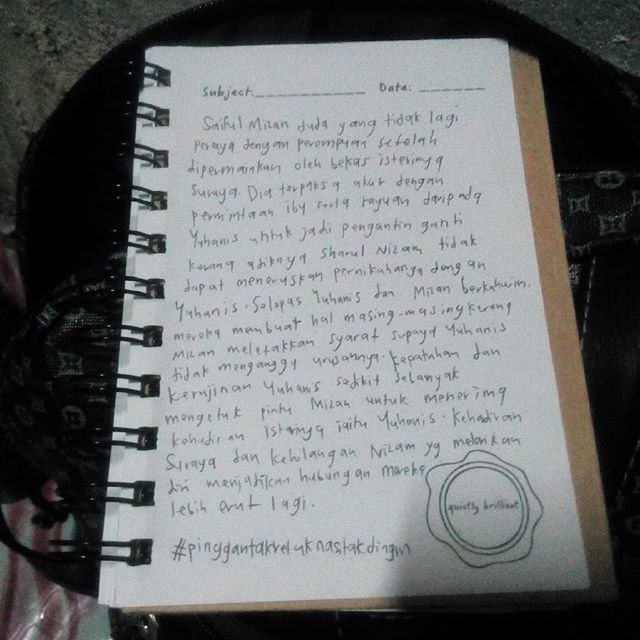 Subject:____________ Date: _______
Saiful Mizan duda yang tidak lagi
peraya dengan perempuan setelah
dipermainkan oleh bekas isterinya
Suraya. Dia terpaksa akur dengan
permintaan ibu serta rayuan daripada
Yuhanis untuk jadi pengantin ganti
kerana adiknya Sharul Nizam tidak
dapat meneruskan pernikahanya dengan
Yuhanis. Selepas Yuhanis dan Mizan berkahwin,
mereka membuat hal masing-masing kerana
Mizan meletakkan syarat supaya Yuhanis
tidak menganggu urusannya. Kepatuhan dan
Kerajinan Yuhanis sedikit sebanyak
mengetuk pintu Mizan untuk menerima
kehadiran isterinya iaitu Yuhanis. Kehadiran
Suraya dan kehilangan Nizam yg melarikan
diri menjadikan hubungan mereka
lebih erat lagi.
quietly brilliant
#pinggantakretaknasitakdingin